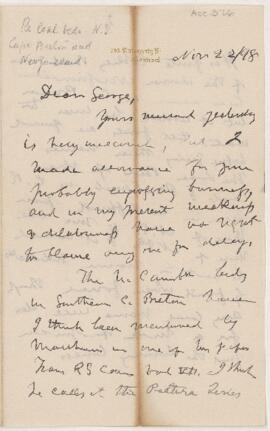 Acc 546
Re Coal beds N.S
Cape Breton and
Newfoundland
Nov 22/98
Dear George,
Yours received yesterday
is very welcome, but I
made allowance for your
probably engrossing business,
and in my present weakness
& dilatoriness have no right
to blame any one for delay.
The Cambn beds
in Southern C. Breton have
I think been mentioned by
Matthew in one of his papers
Trans RS Can vol I think
he calls it the Series